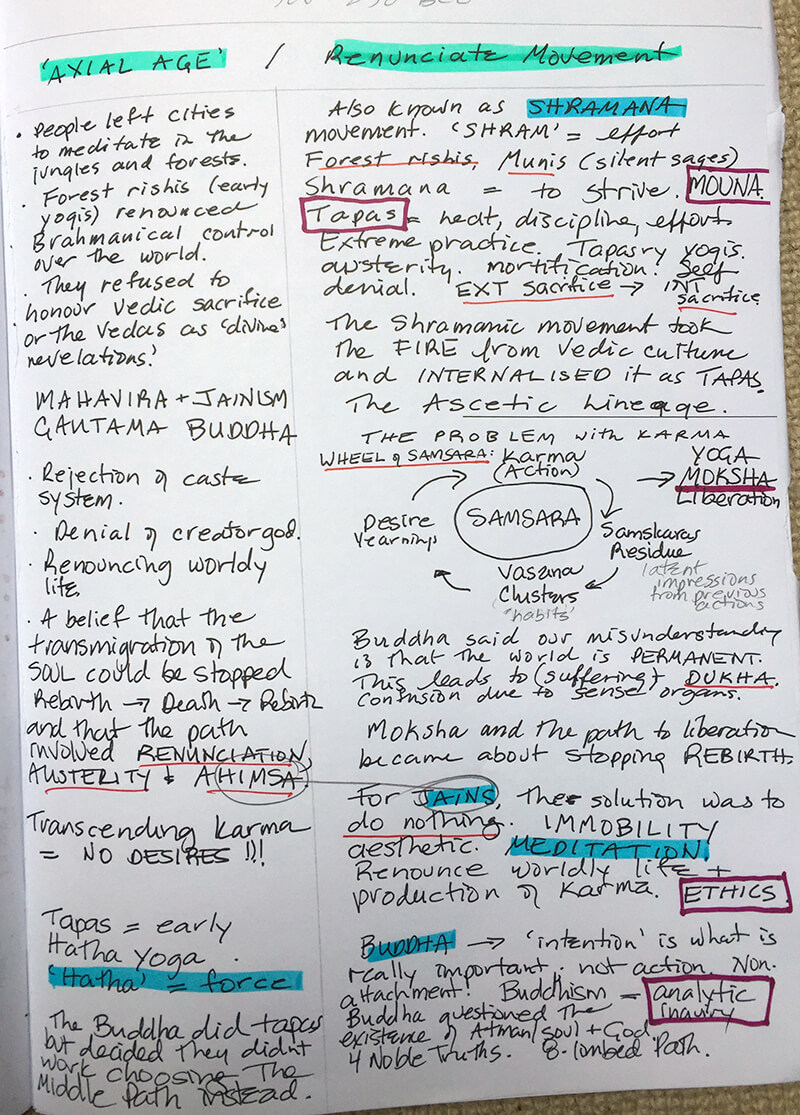 'AXIAL AGE' / Renunciate Movement
• People left cities
to meditate in the
jungles and forests.
• Forest rishis (early
yogis) renounced
Brahmanical control
over the world.
• They refused to
honour Vedic sacrifice
or the Vedas as 'divine
revelations.'
MAHAVIRA + JAINISM
GAUTAMA BUDDHA
• Rejection of caste
system.
• Denial of creator god.
• Renouncing worldly
life.
• A belief that the
transmigration of the
SOUL could be stopped
Rebirth → Death → Rebirth
and that the path
involved RENUNCIATION,
AUSTERITY & AHIMSA.
Transcending Karma
= NO DESIRES !!!
Tapas = early
Hatha yoga.
'Hatha' = force
The Buddha did tapas
but decided they didn't
work choosing The
Middle Path instead.
Also known as SHRAMANA
movement. 'SHRAM' = effort
Forest rishis, Munis (silent sages)
Shramana = to strive. MOUNA.
Tapas = heat, discipline, effort
Extreme practice. Tapasry yogis.
austerity. mortification. Self
denial. EXT sacrifice → INT
sacrifice
The Shramanic movement took
the FIRE from Vedic culture
and INTERNALISED it as TAPAS.
The Ascetic Lineage.
THE PROBLEM with KARMA
WHEEL of SAMSARA: Karma
(Action)
YOGA
→ MOKSHA
Liberation
SAMSARA
Desire
Yearnings
Samskaras
Residue
latent
impressions
from previous
actions
Vasana
Clusters
'habits'
Buddha said our misunderstanding
is that the world is PERMANENT.
This leads to (suffering) DUKHA.
confusion due to sense organs.
Moksha and the path to liberation
became about stopping REBIRTH.
For JAINS, the solution was to
do nothing. IMMOBILITY
aesthetic. MEDITATION.
Renounce worldly life +
production of Karma. ETHICS.
BUDDHA → 'intention' is what is
really important, not action. Non-
attachment. Buddhism = analytic
inquiry
Buddha questioned the
existence of Atman/soul + God.
4 Noble Truths. 8-limbed Path.